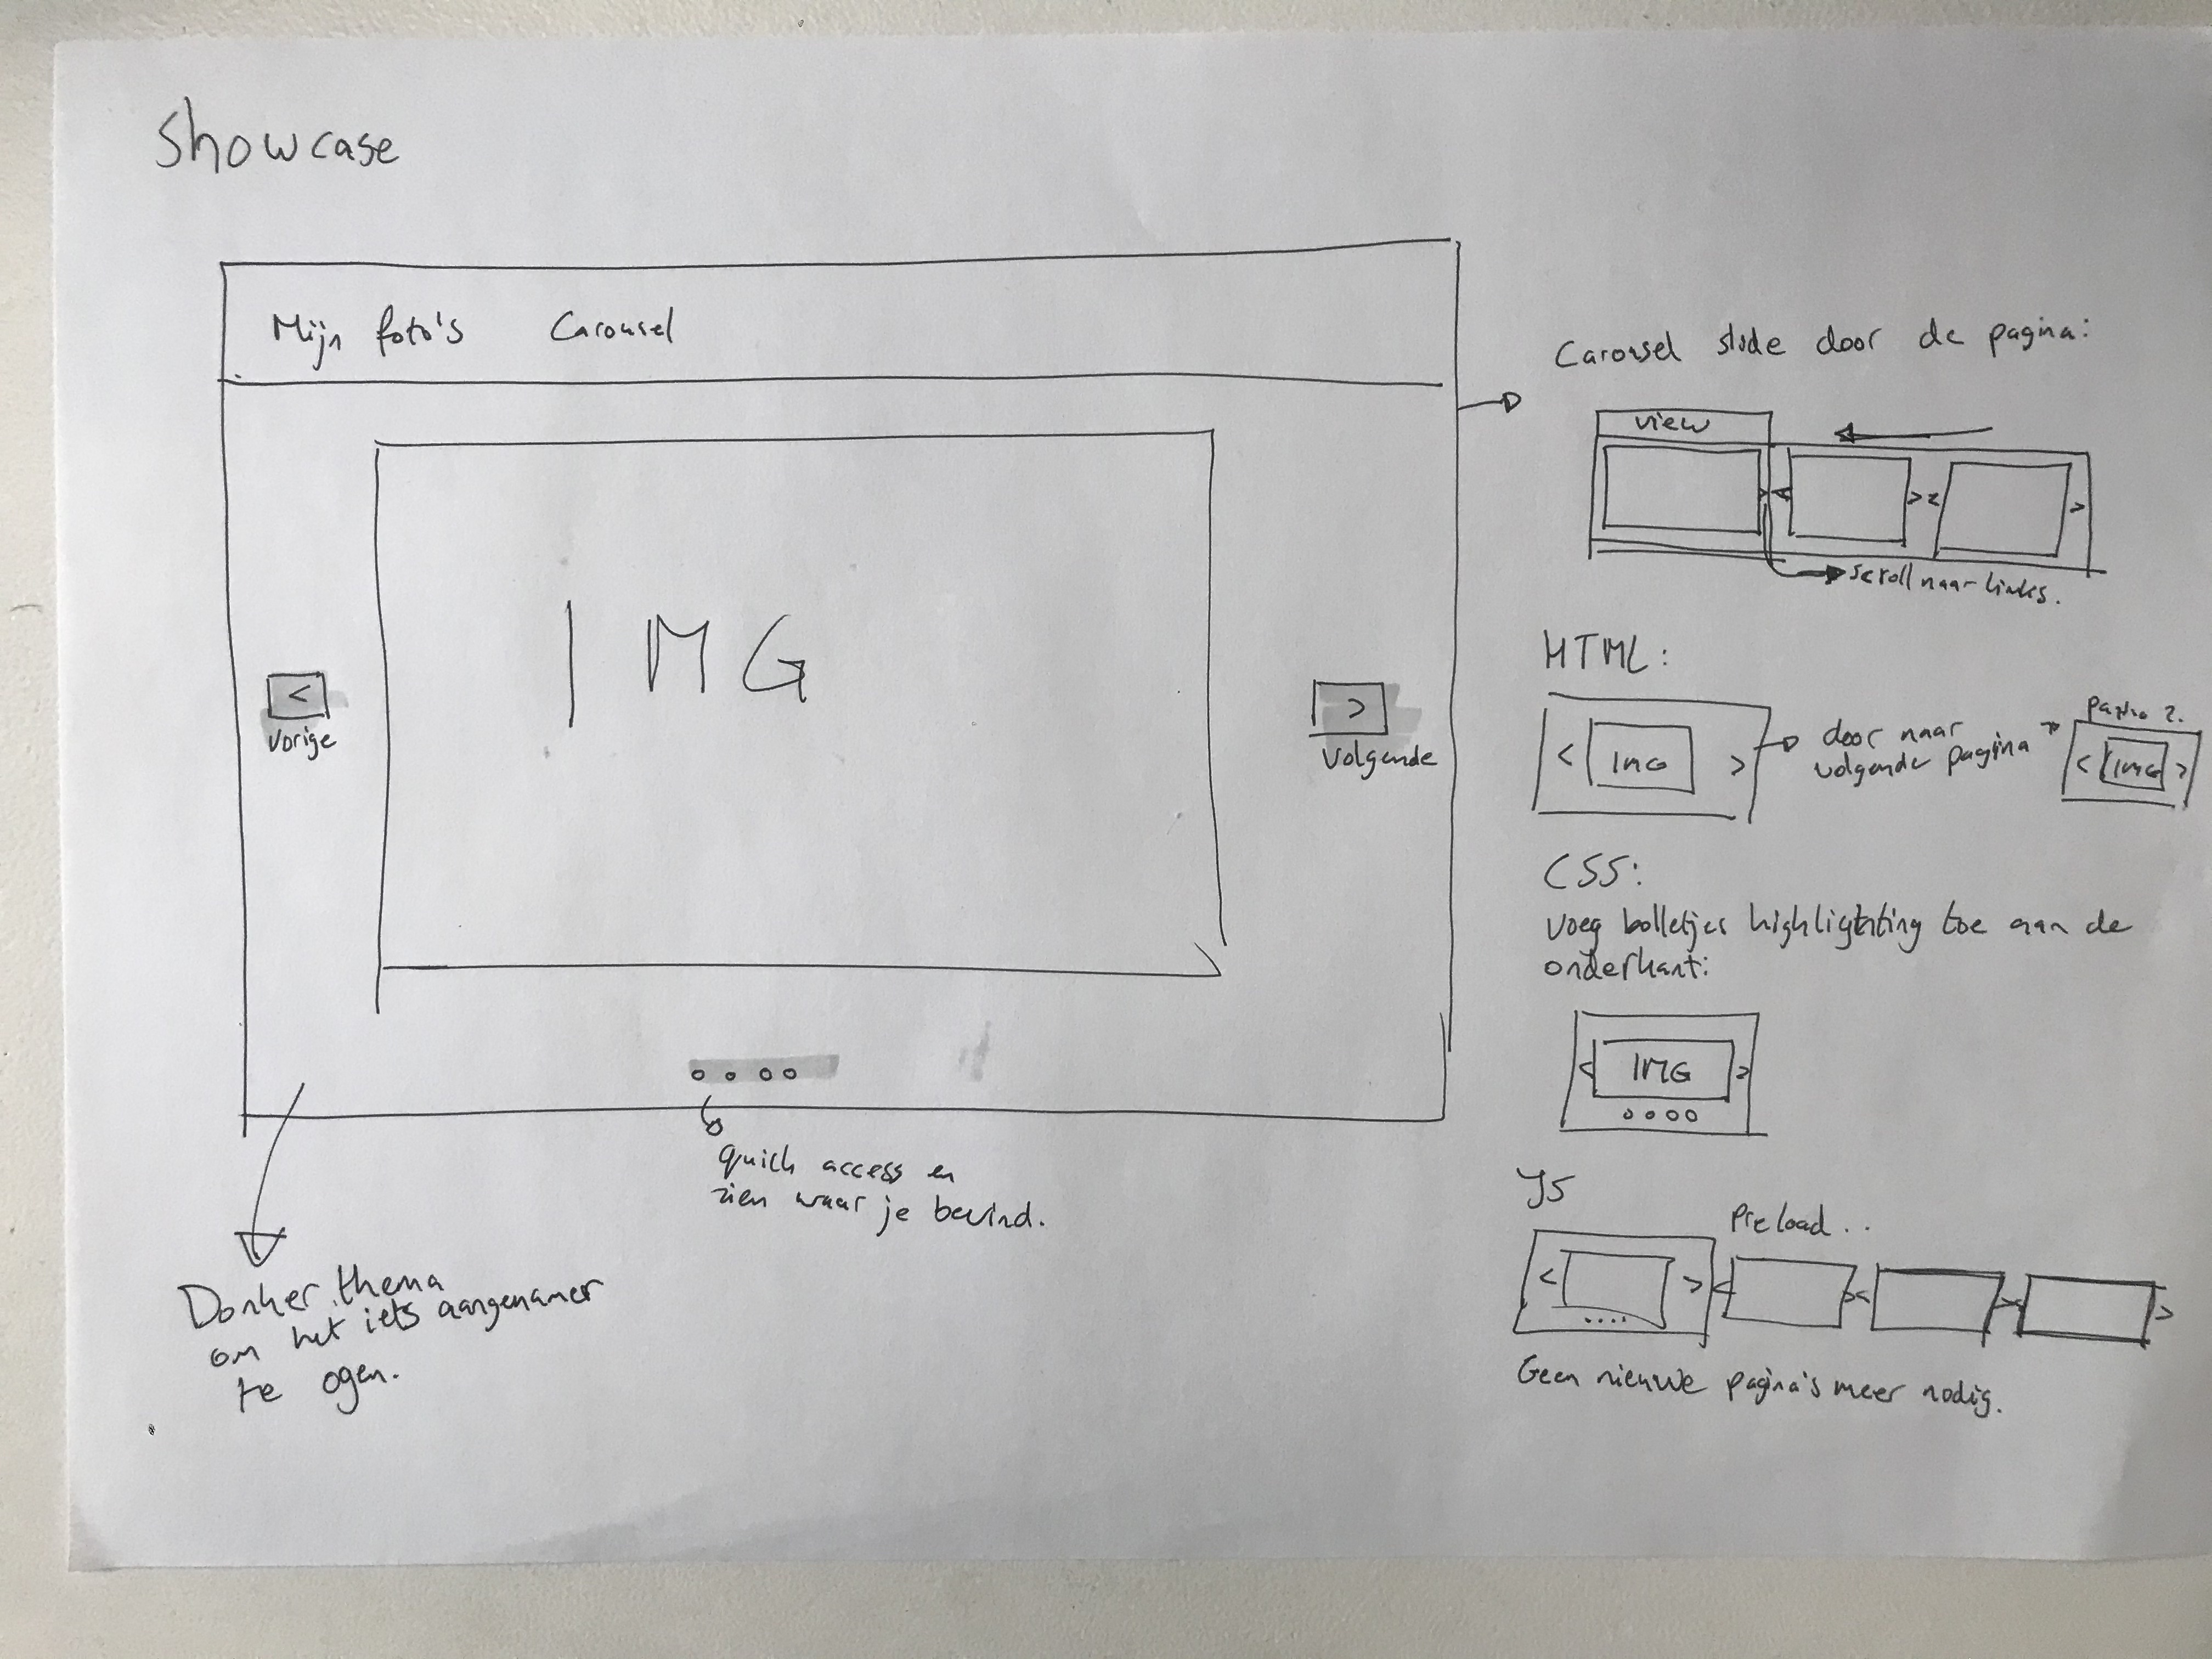 Showcase
Mijn foto's Carousel
IMG
<
vorige
>
volgende
quick access en
zien waar je bevind.
Donker thema
om het iets aangenamer
te ogen.
Carousel slide door de pagina:
view
> < > < >
scroll naar links.
HTML:
< IMG >
door naar
volgende pagina
pagina 2.
< IMG >
CSS:
voeg bolletjes highlighting toe aan de
onderkant:
< IMG >
JS
Preload..
< > < > < > < >
Geen nieuwe pagina's meer nodig.